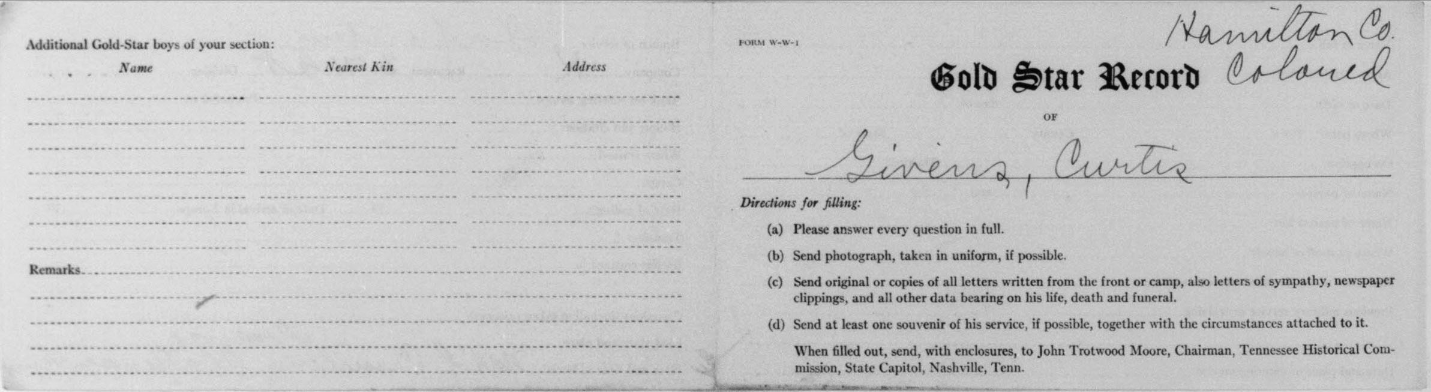 Additional Gold-Star boys of your section:
Name Nearest Kin Address
Remarks
FORM W-W-1
Hamilton Co.
Colored
Gold Star Record
OF
Givens, Curtis
Directions for filling:
(a) Please answer every question in full.
(b) Send photograph, taken in uniform, if possible.
(c) Send original or copies of all letters written from the front or camp, also letters of sympathy, newspaper
clippings, and all other data bearing on his life, death and funeral.
(d) Send at least one souvenir of his service, if possible, together with the circumstances attached to it.
When filled out, send, with enclosures, to John Trotwood Moore, Chairman, Tennessee Historical Com-
mission, State Capitol, Nashville, Tenn.